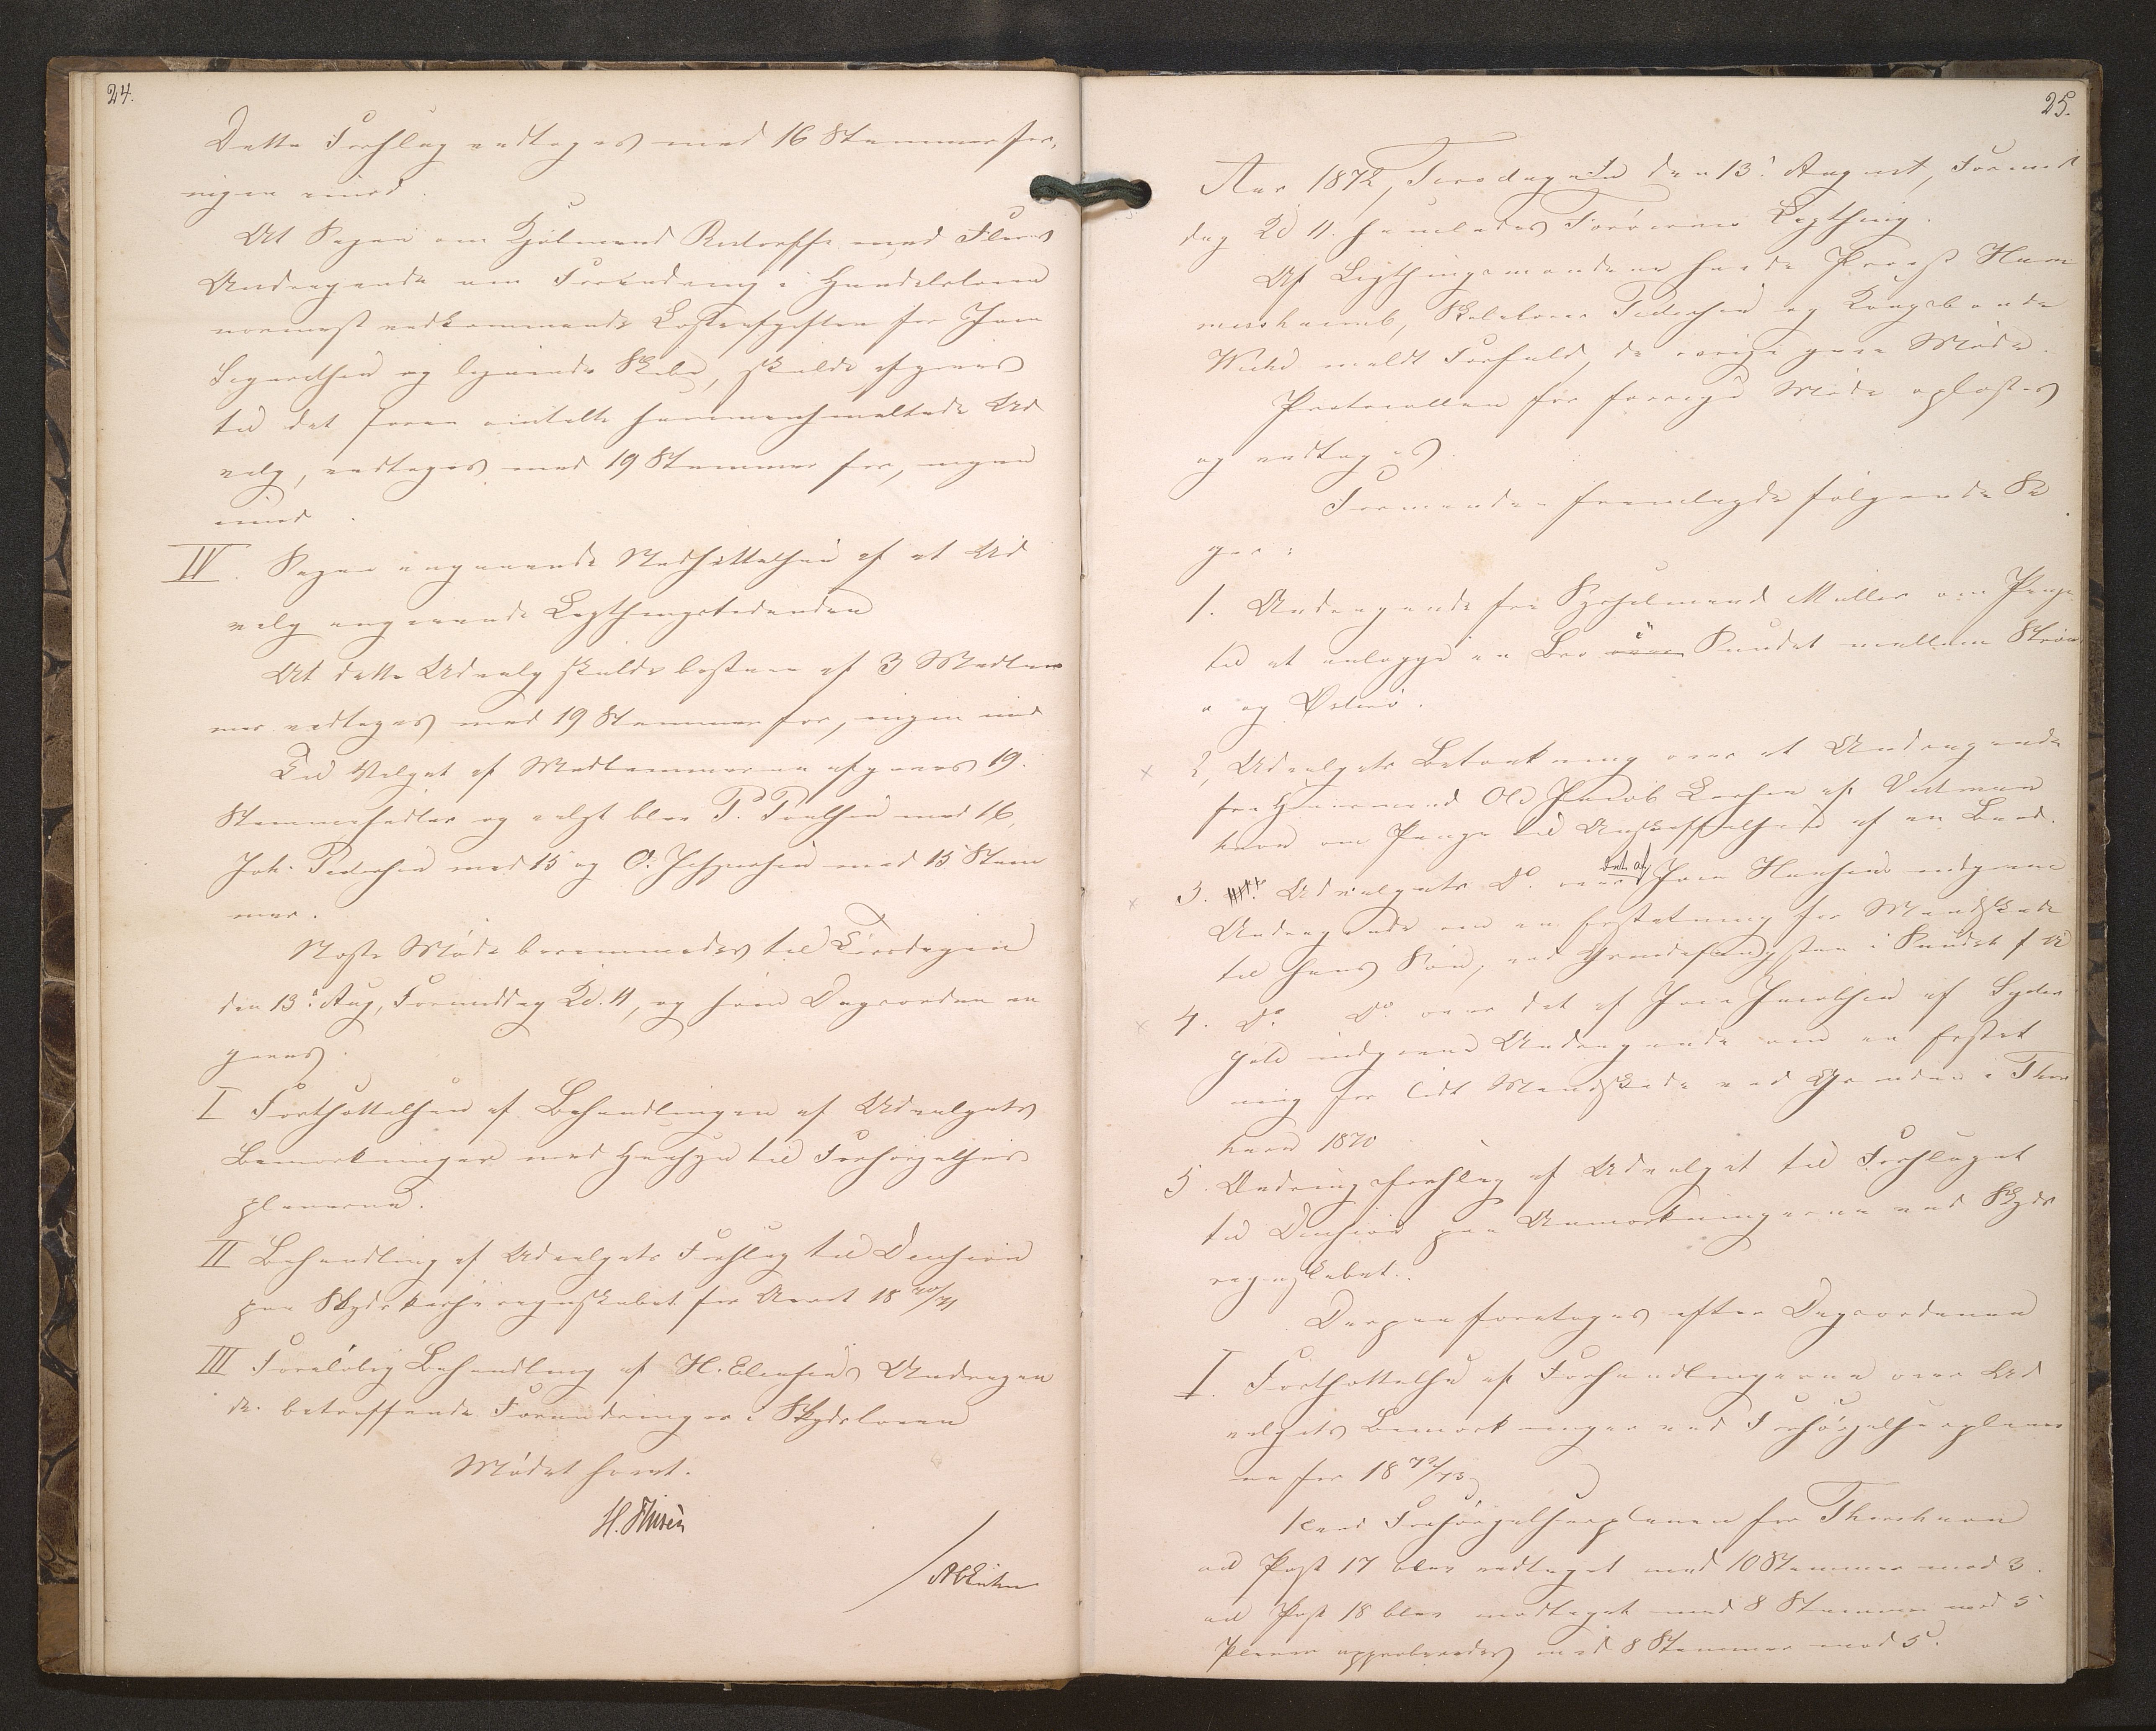 24.
Dette Forslag vedtoges med 16 Stemmer for,
ingen imod.
At Sagen om Kjøbmand Restorffs med Fleres
Andragende om Forandring i Handelsloven
nærmest vedkommende Lasteafgiften for Joen
Sigurdsen og lignende Skibe, skulde afgives
til det foran omtalte sammensmeltede Ud
valg, vedtoges med 19 Stemmer for, ingen
imod.
IV. Sagen angaaende Nedsættelsen af et Ud
valg angaaende Lagthingstidenden
At dette Udvalg skulde bestaae af 3 Medlem
mer vedtoges med 19 Stemmer for, ingen imod
Til Valget af Medlemmerne afgaves 19.
Stemmesedler og valgt blev P. Poulsen med 16,
Joh. Petersen med 15 og O. Jespersen med 15 Stem
mer.
Næste Møde berammedes til Tirsdagen
den 13de Aug, Formiddag Kl. 11, og som Dagsorden an
gaves.
I Fortsættelsen af Behandlingen af Udvalgets
Bemærkninger med Hensyn til Forsørgelses
planerne.
II Behandling af Udvalgets Forslag til Decision
paa Skydskasseregnskabet for Aaret 18 70/71
III Foreløbig Behandling af H. Olensens Andragen
de betræffende Forandringer i Skydsloven
Mødet hævet.
H. Finsen
25.
Aar 1872, Tirsdagen den 13de August, Formid
dag Kl 11. samledes Færøernes Lagthing.
Af Lagthingsmændene havde Provst Ham
mershaimb, Skolelærer Petersen og Kongsbonde
meldt Forfald, de øvrige gave Møde.
Protocollen for forrige Møde oplæstes
og vedtoges.
Formanden fremlagde følgende Sa
ger:
1. Andragende fra Sysselmand Müller om Penge
til at anlægge en Bro over i Sundet mellem Strøm
ø og Østerø.
2, Udvalgets Betænkning over et Andragende
fra Huusmand Ole Jacob Larsen af Vestman
havn om Penge til Anskaffelsen af en Baad.
3. Udvalgets Do. over det af Joen Hansen indgivne
Andragende om en Erstatning for Mandskade
til hans Søn, ved Grindefangsten i Sundet f. A
4. Do. Do. over det af Joen Jacobsen af Syder
Gøte indgivne Andragende om en Erstat
ning for lidt Mandskade ved Grinden i Thors
havn 1870
5. Ændringsforslag af Udvalget til Forslaget
til Decision paa Anmærkningerne ved Skyds
regnskabet.
Derpaa foretoges efter Dagsordenen
I. Fortsættelse af Forhandlingerne over Ud
valgets Bemærkninger ved Forsørgelsesplaner
ne for 18 72/73
Ved Forsørgelsesplanen for Thorshavn
ad Post 17 blev vedtaget med 10 Stemmer mod 3.
ad Post 18 blev vedtaget med 8 Stemmer mod 5
Planen approberedes med 8 Stemmer mod 5.